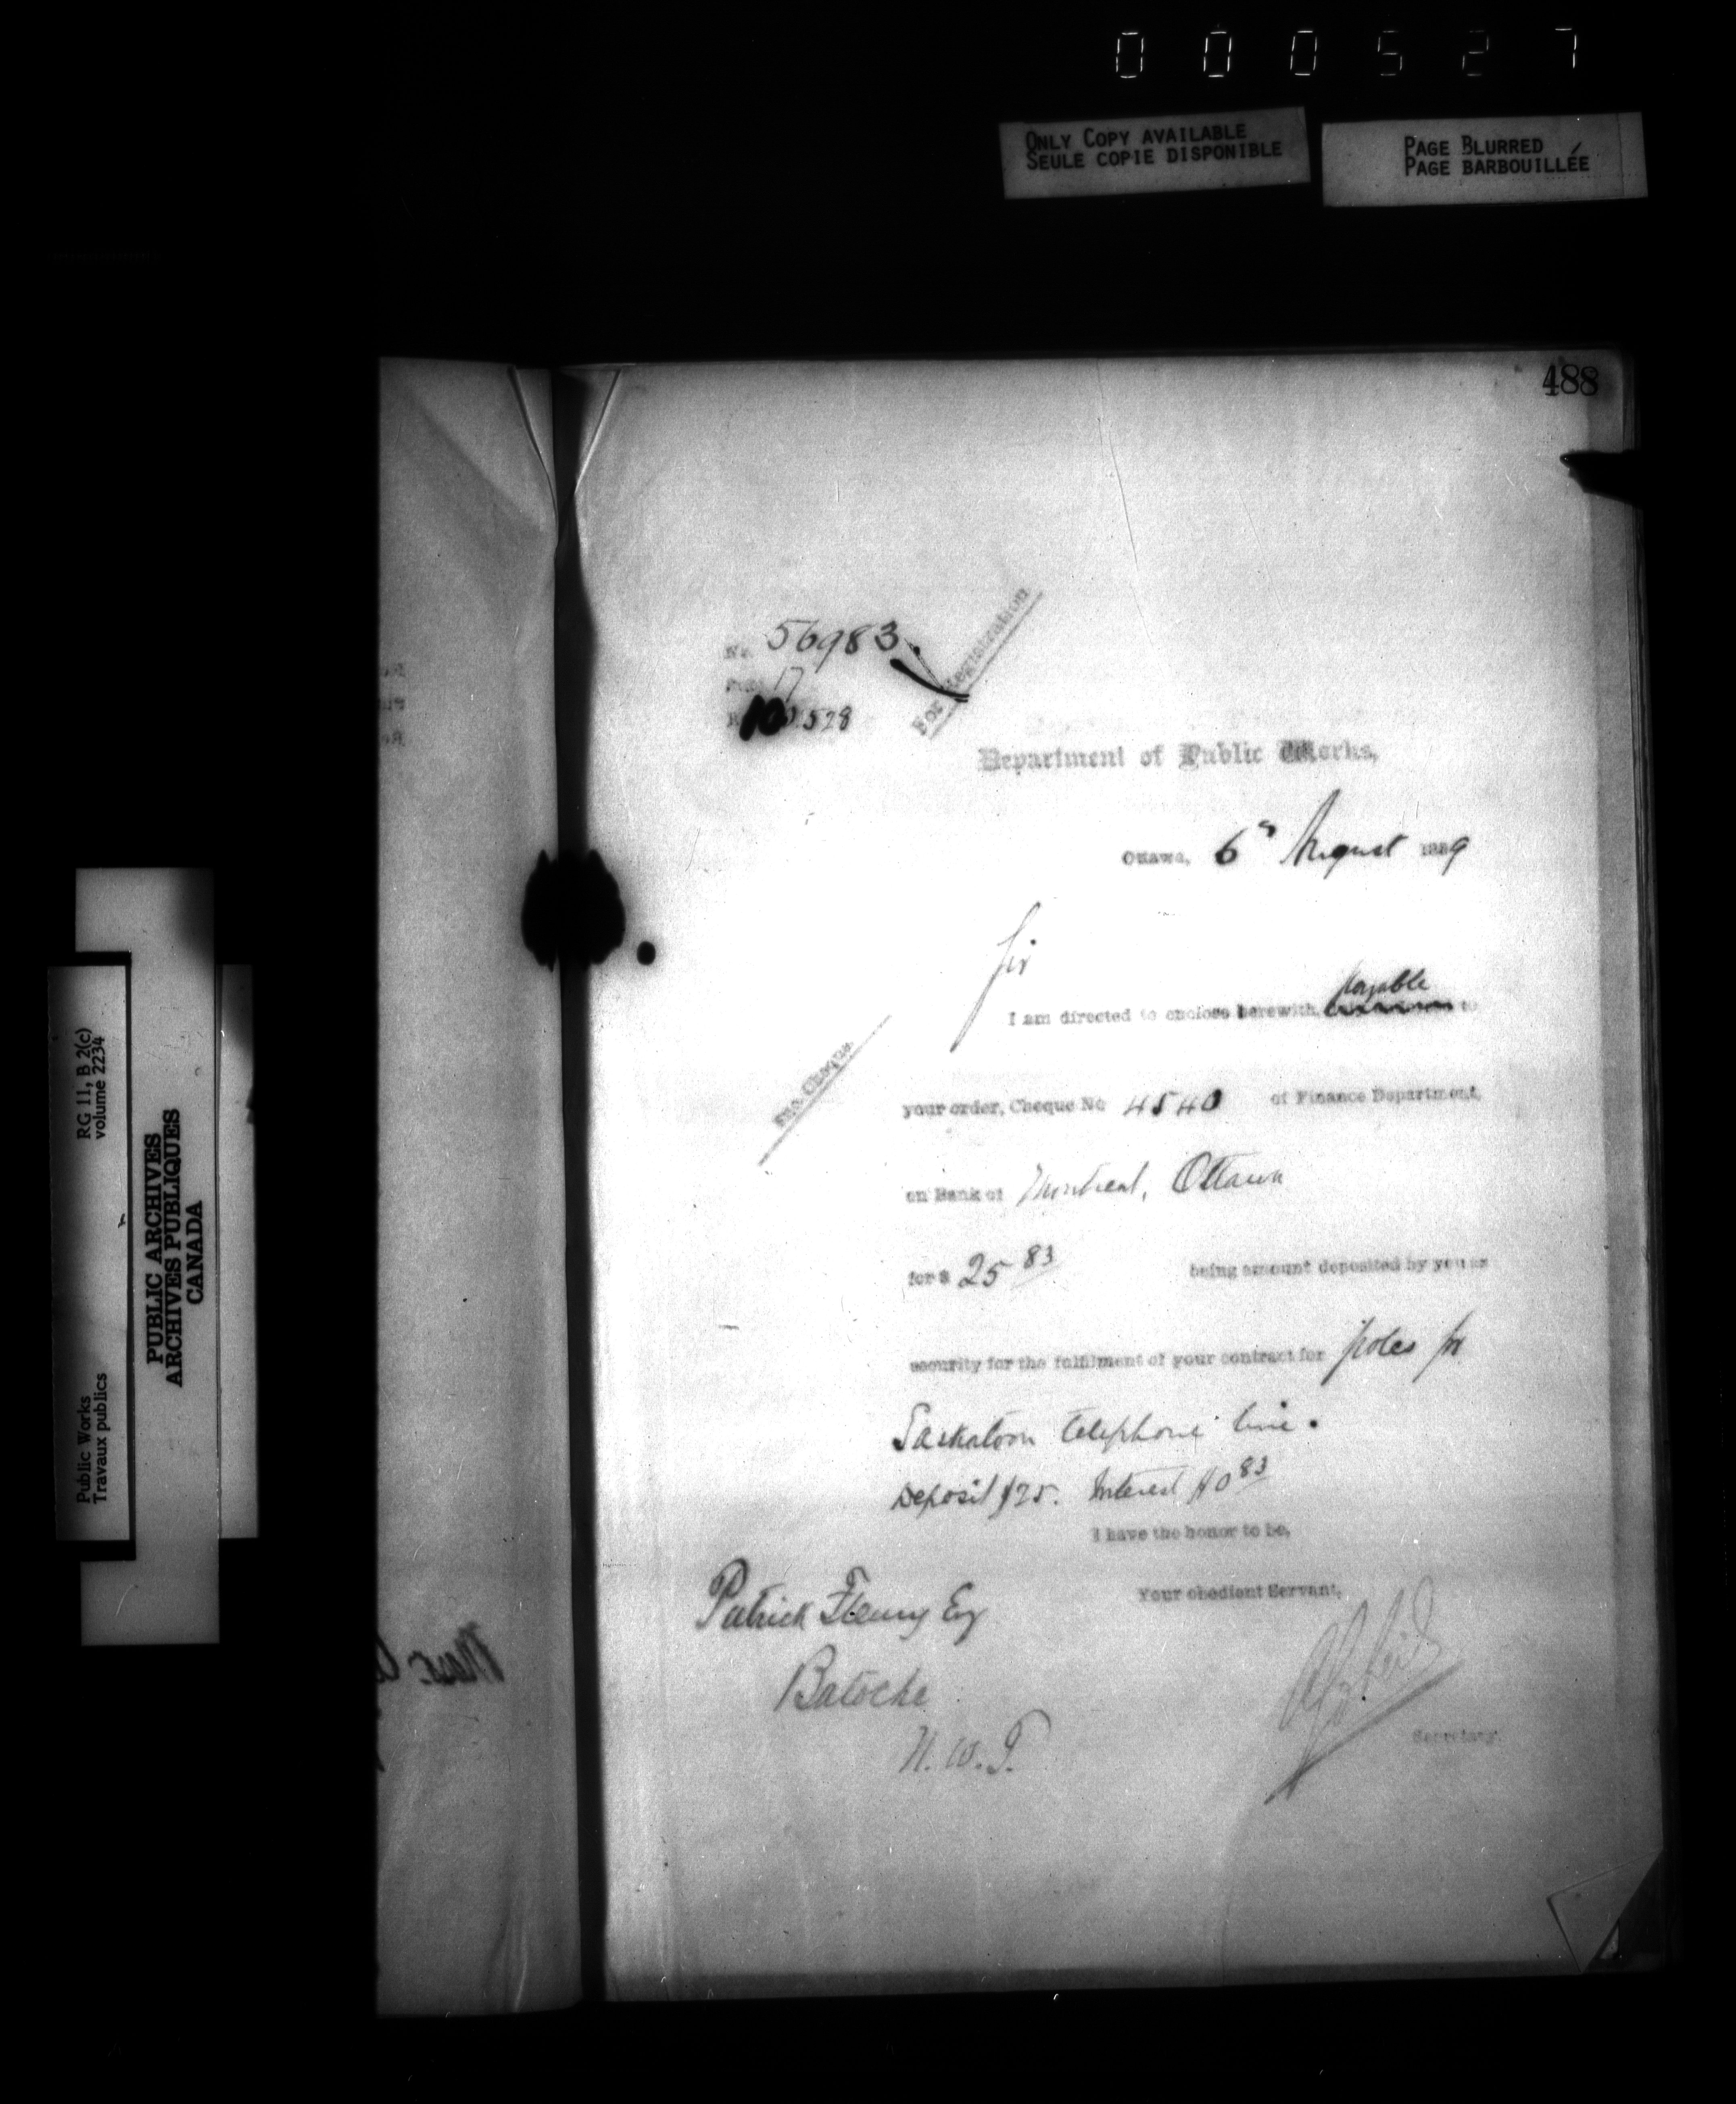 000527
ONLY COPY AVAILABLE
SEULE COPIE DISPONIBLE
PAGE BLURRED
PAGE BARBOUILLÉE
488
No. 56983
17
528
For Registration
Department of Public Works,
Ottawa, 6th August 1889
Sir
payable
I am directed to enclose herewith, to
Enc. Cheque.
your order, Cheque No 4540 of Finance Department,
on Bank of Montreal, Ottawa
for $ 25 83 being amount deposited by you as
security for the fulfilment of your contract for poles for
Saskatoon telephone line.
Deposit $25. Interest $0 83
I have the honor to be,
Your obedient Servant,
Patrick Fleury Esq
Batoche
N.W.T.
Secretary.
RG 11, B 2(c)
volume 2234
Public Works
Travaux publics
PUBLIC ARCHIVES
ARCHIVES PUBLIQUES
CANADA